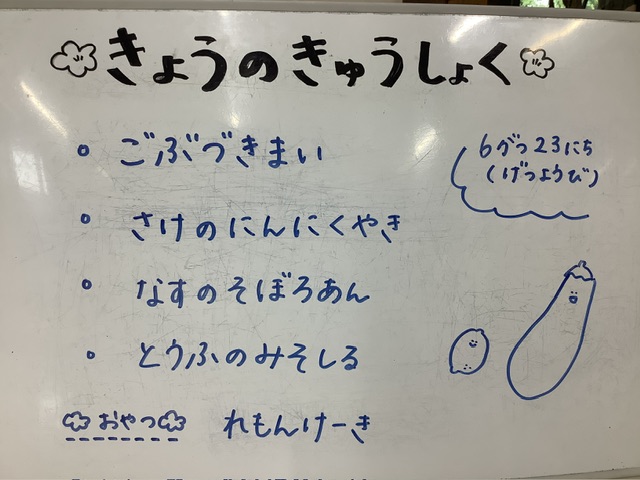 きょうのきゅうしょく
6がつ23にち
(げつようび)
ごぶづきまい
さけのにんにくやき
なすのそぼろあん
とうふのみそしる
おやつ れもんけーき